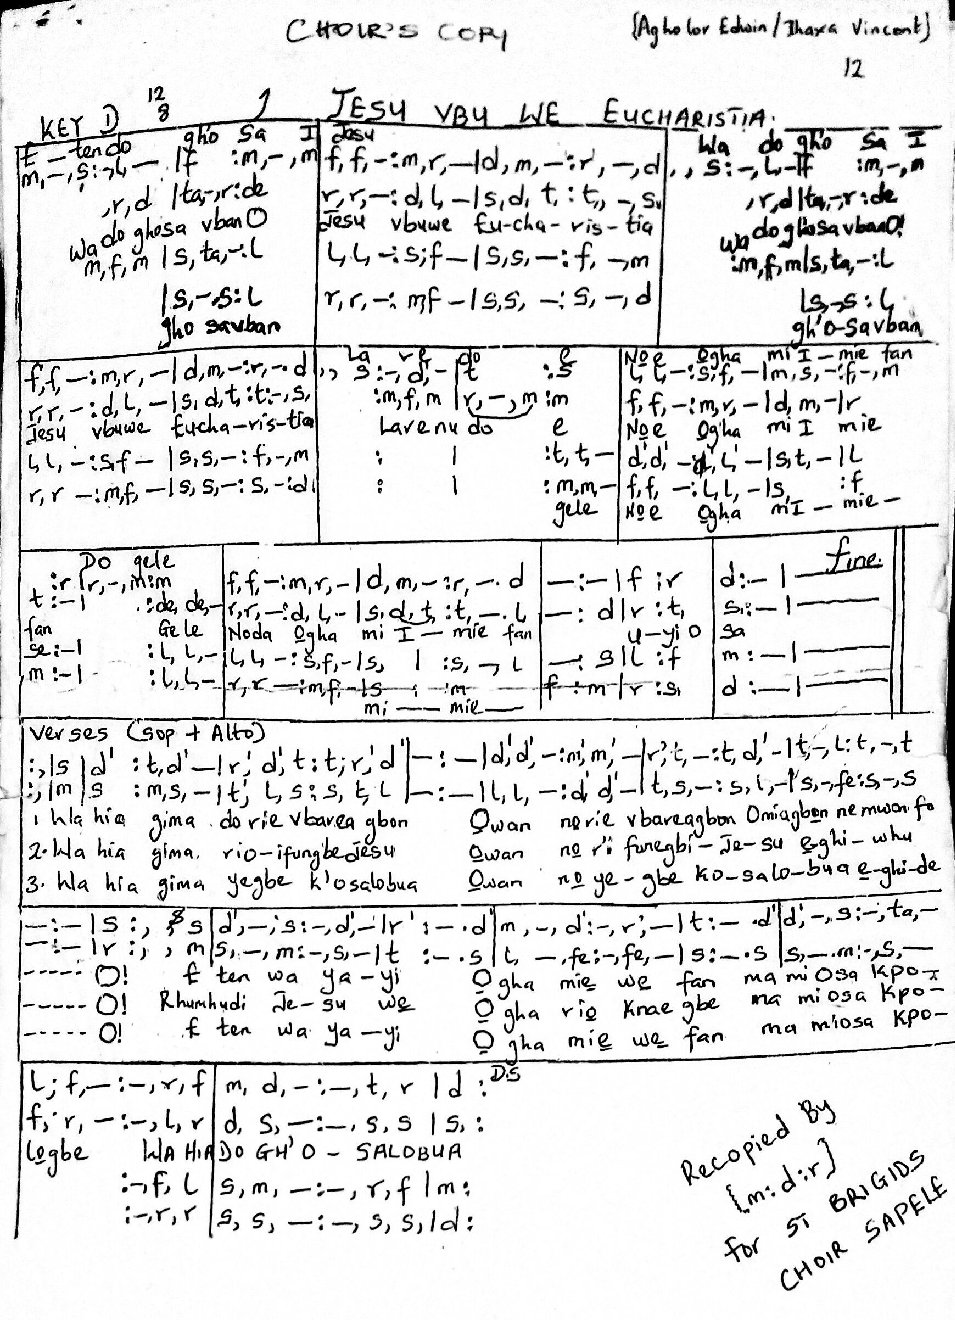 CHOIR'S COPY
(Agholor Edwin / Ihaxa Vincent)
12
KEY D 12 8 JESU VBU WE EUCHARISTIA.
E - tendo gho Sa I Jesu Wa do gho Sa I
m,-,s:-,L- |f :m,-,m f,f,-:m,r,-|d,m,-:r,-,d ,,s:-,L-|f :m,-,m
,r,d |ta,-,r:de r,r,-:d,L,-|s,d,t,:t,-,s, ,r,d|ta,-,r:de
Wa do ghosa vban O Jesu vbuwe Eu-cha-ris-tia Wa do ghosa vban O!
m,f,m |s,ta,-:L L,L,-:s,f-|s,s,-:f,-,m :m,f,m|s,ta,-:L
|s,-,s:L r,r,-:m,f-|s,s,-:s,-,d |s,-,s:L
gho savban gh'O-Savban
La ve do e Noe Ogha mi I - mie fan
f,f,-:m,r,-|d,m,-:r,-.d ,,s:-,d',-|t :s L,L,-:s,f,-|m,s,-:f,-,m
r,r,-:d,L,-|s,d,t,:t,-,s, :m,f,m |r,-,m:m f,f,-:m,r,-|d,m,-|r
Jesu vbuwe Eucha-ris-tia Lavenu do e Noe Ogha mi I mie
L,L,-:s,f-|s,s,-:f,-,m : | :t,t,- d',d',-:d',L'-|s,t,-|L
r,r-:m,f,-|s,s,-:s,-:d : | :m,m,- f,f,-:L,L,-|s, :f
gele Noe Ogha mI - mie -
Do gele fine.
:r |r,-,m:m f,f,-:m,r,-|d,m,-:r,-.d -:-|f :r d:-|-
t:-| .:de,de,- r,r,-:d,L,-|s,d,t,:t,-.L -:d|r:t, s,:-|-
fan Gele Noda Ogha mi I - mie fan u-yi O sa
se:-| :L,L,- L,L,-:s,f,-|s, | :s,-,L -:s|L:f m:-|-
,m:-| :L,L,- r,r-:m,f,-|s :m f:m|r:s, d:-|-
mi - mie -
Verses (Sop + Alto)
:,|s |d' :t,d'-|r',d',t:t,r',d'|-:-|d',d',-:m',m',-|r',t,-:t,d',-|t,-,L:t,-,t
:,|m|s :m,s,-|t,L,s:s,t,L |-:-|L,L,-:d',d',-|t,s,-:s,L,-|s,-,fe:s,-,s
1 Wa hia gima do rie vbarea gbon Owan no rie vbareagbon Omiagbon ne mwan fo
2. Wa hia gima rio-ifungbe Jesu Owan no rii funegbi-Je-su e-ghi-whu
3. Wa hia gima yegbe k'osalobua Owan no ye-gbe ko-salo-bua e-ghi-de
-:-|s:, s d',-,s:-,d',-|r' :-.d' m,-,d':-,r',-|t:-.d' d',-,s:-,ta,-
-:-|r:,,m s,-,m:-,s,-|t :-.s t,-,fe:-,fe,-|s:-.s s,-.m:-,s,-
----- O! E ten wa ya-yi O gha mie we fan ma mi Osa Kpo-
----- O! Rhumhudi Je-su we O gha rio Knae gbe ma mi osa Kpo-
----- O! E ten wa ya-yi O gha mie we fan ma miosa Kpo-
L;f,-:-,r,f m,d,-:-,t,r |d: D.S
f,r,-:-,L,r d,s,-:-,s,s |s,:
logbe WA HIA DO GH'O - SALOBUA
:-,f,L s,m,-:-,r,f|m:
:-,r,r s,s,-:-,s,s,|d:
Recopied By
[m:d:r]
for ST BRIGIDS
CHOIR SAPELE